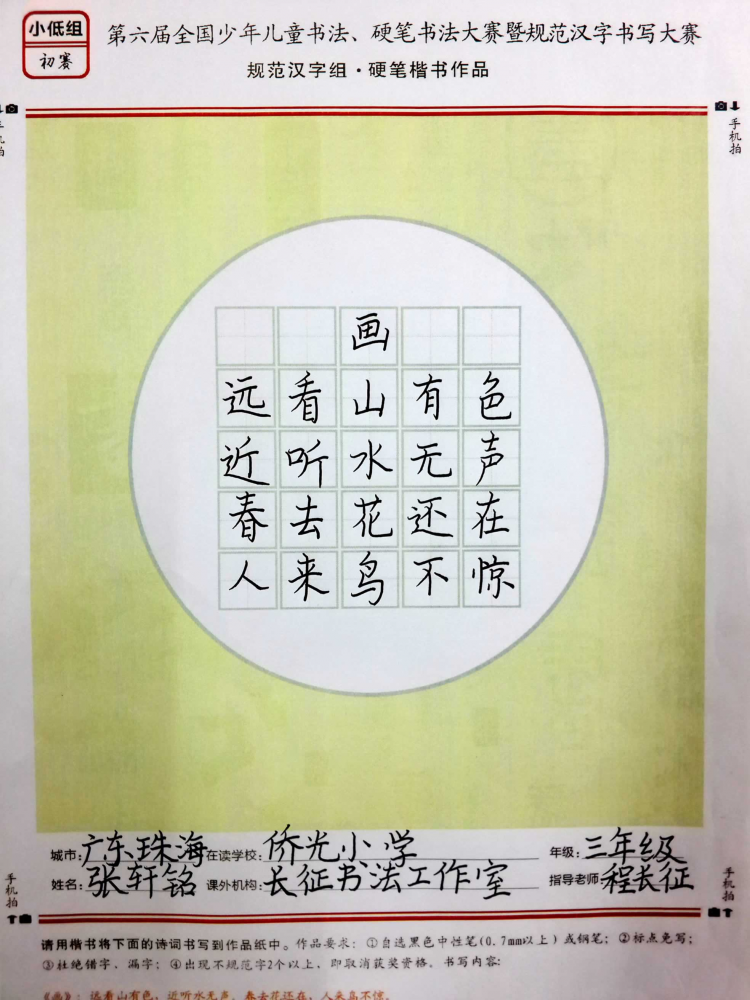 小低组
初赛
第六届全国少年儿童书法、硬笔书法大赛暨规范汉字书写大赛
规范汉字组·硬笔楷书作品
手机拍
手机拍
画
远看山有色
近听水无声
春去花还在
人来鸟不惊
城市:广东珠海 在读学校:侨光小学 年级:三年级
姓名:张轩铭 课外机构:长征书法工作室 指导老师:程长征
手机拍
手机拍
请用楷书将下面的诗词书写到作品纸中。作品要求：①自选黑色中性笔(0.7mm以上)或钢笔；②标点免写；
③杜绝错字、漏字；④出现不规范字2个以上，即取消获奖资格。书写内容:
《画》：远看山有色，近听水无声。春去花还在，人来鸟不惊。